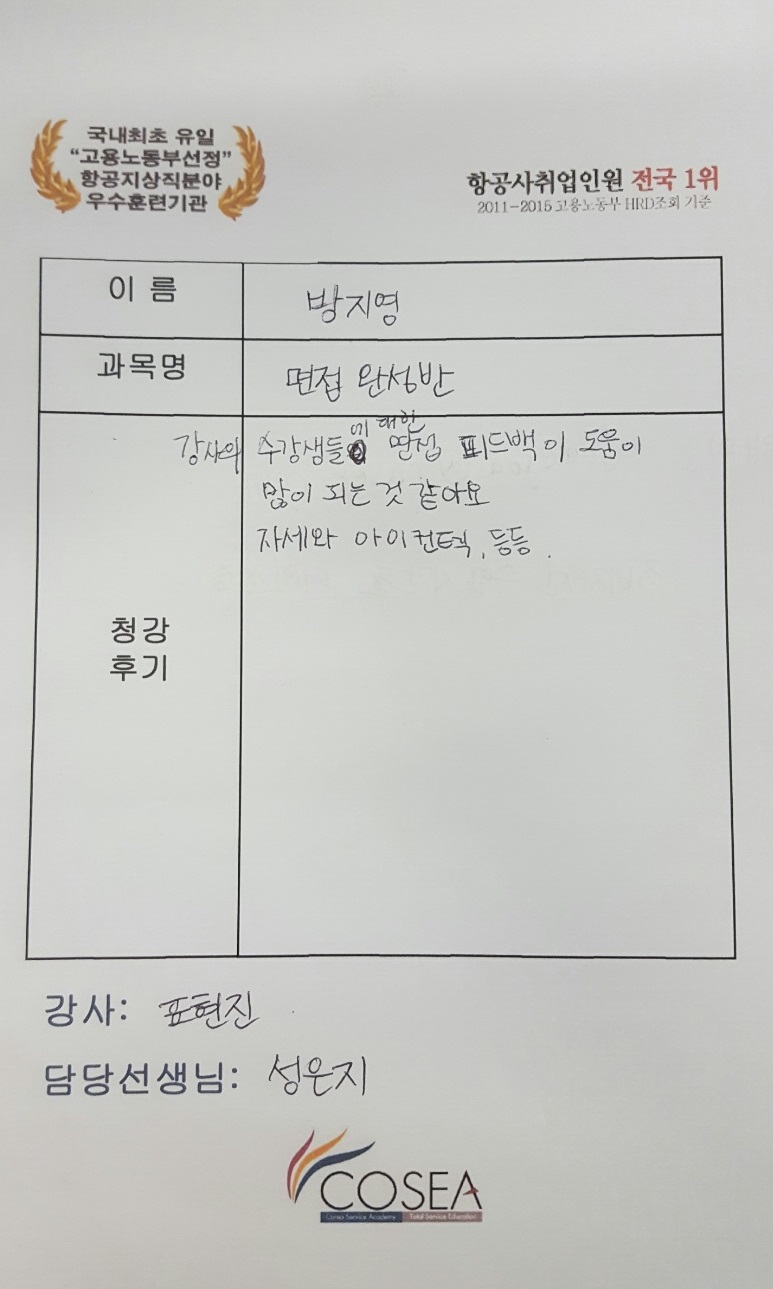 국내최초 유일
"고용노동부선정"
항공지상직분야
우수훈련기관
항공사취업인원 전국 1위
2011-2015 고용노동부 HRD조회 기준
이 름
방지영
과목명
면접 완성반
에 대한
강사의 수강생들 면접 피드백이 도움이
많이 되는 것 같아요
자세와 아이컨텍, 등등.
청강
후기
강사: 표현진
담당선생님: 성은지
COSEA
Cosea Service Academy Total Service Education